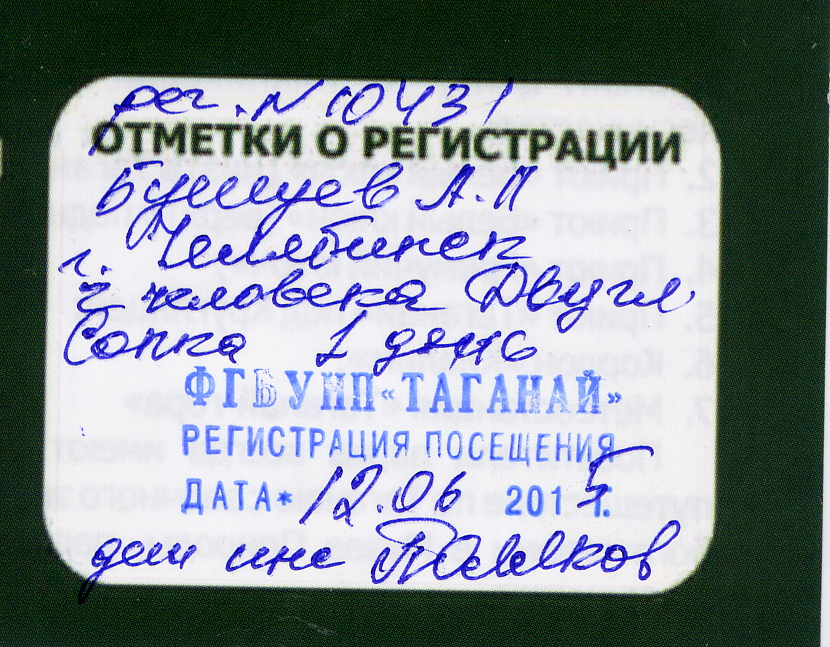 рег. N 10431
ОТМЕТКИ О РЕГИСТРАЦИИ
Бушуев А.П
г. Челябинск
2 человека Двугл
Сопка 1 день
ФГБУ НП «ТАГАНАЙ»
РЕГИСТРАЦИЯ ПОСЕЩЕНИЯ
ДАТА* 12.06 2015